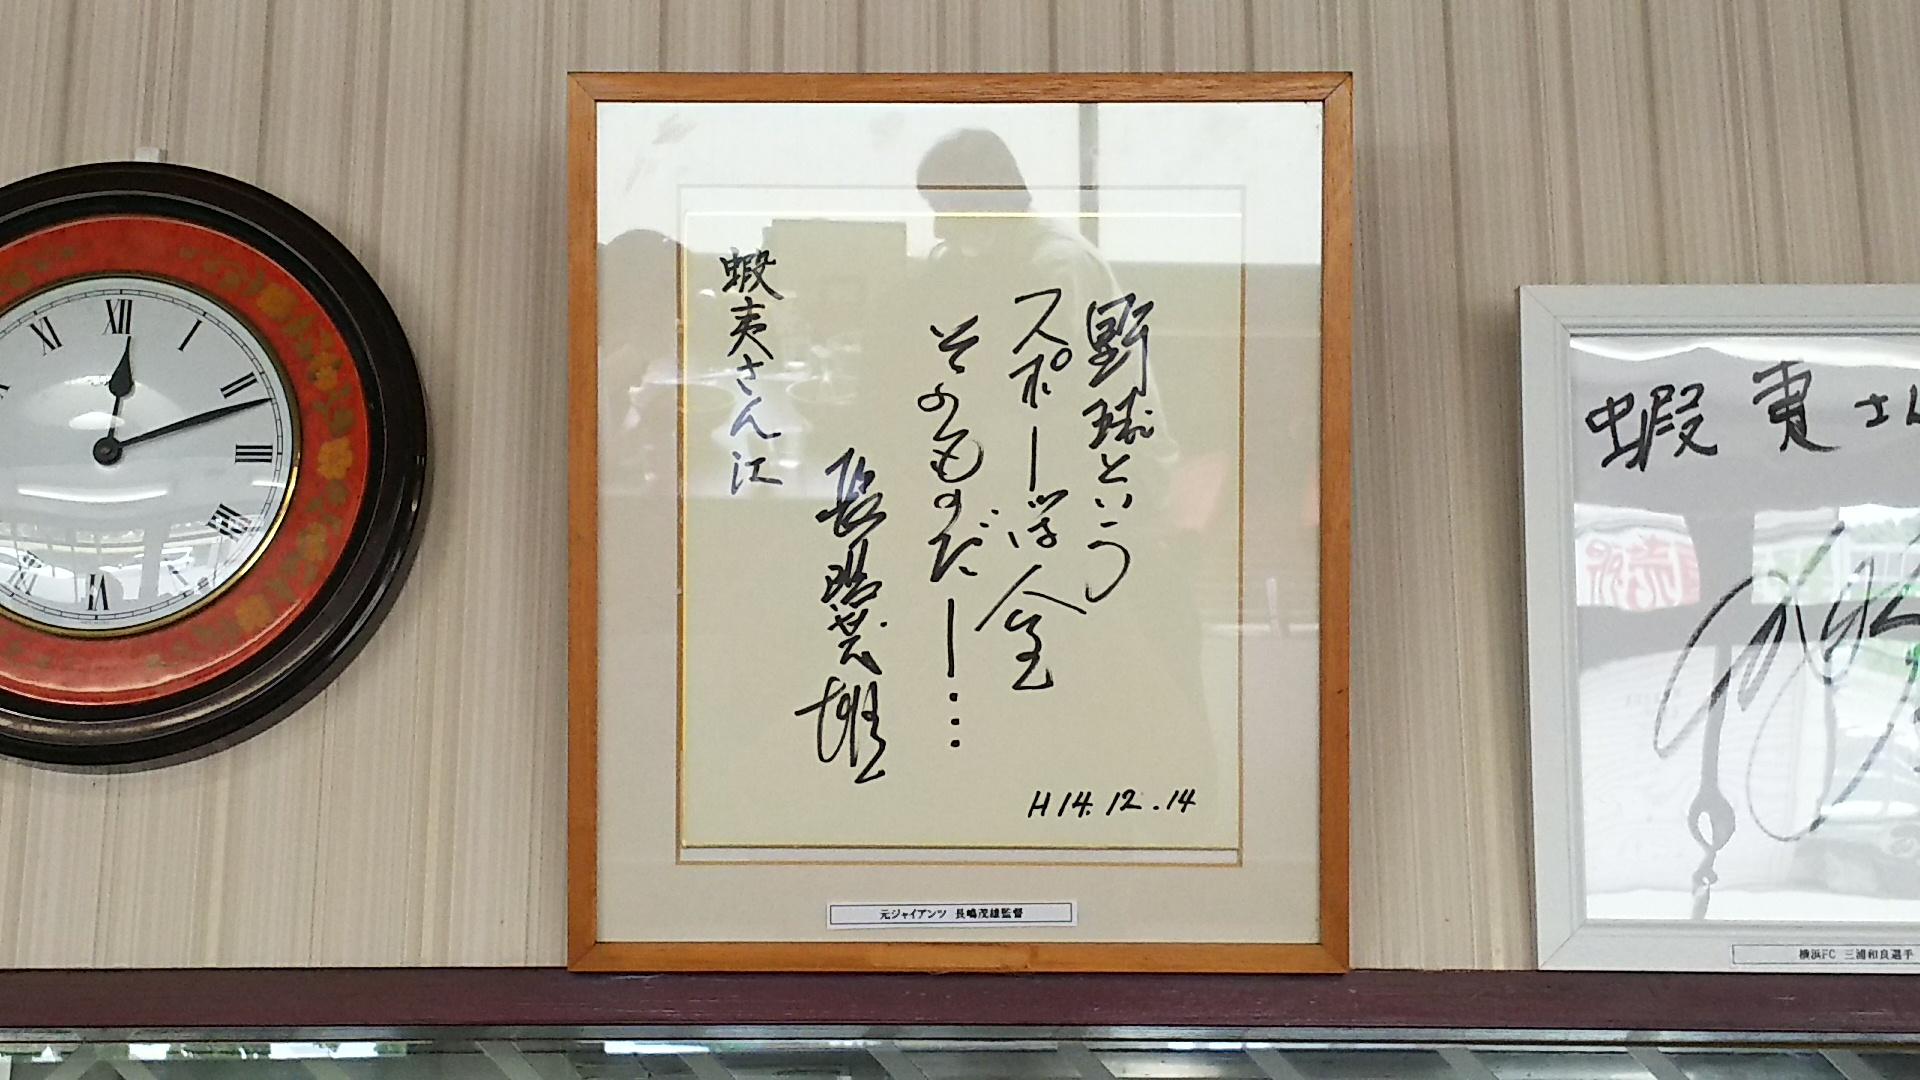 野球という
スポーツは 全
そのものだー…
長嶋茂雄
蝦夷さん江
H14.12.14
元ジャイアンツ 長嶋茂雄監督
蝦夷さん
横浜FC 三浦和良選手
XII
I
II
III
IIII
VI
XI